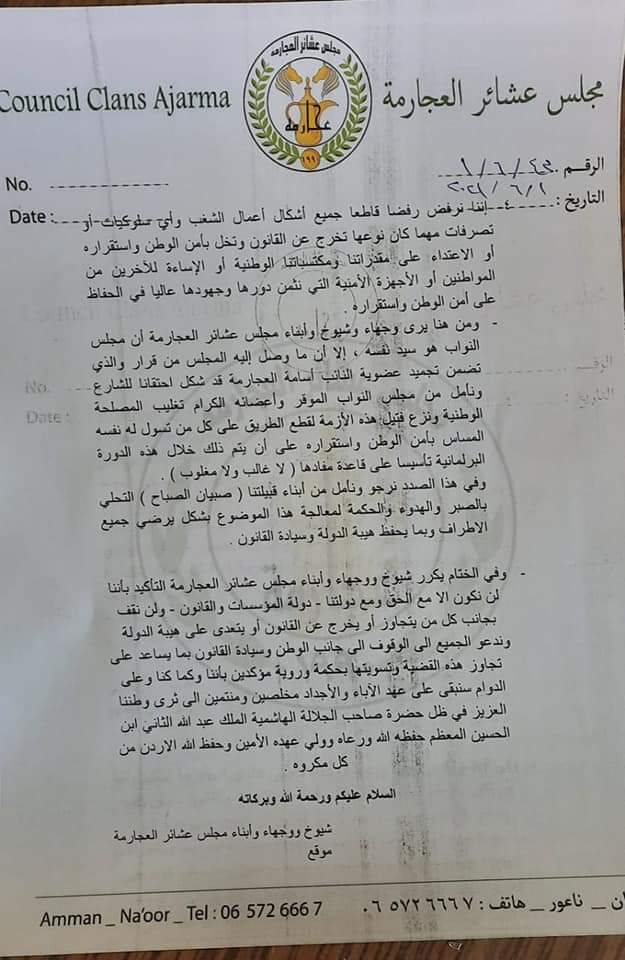 Council Clans Ajarma
مجلس عشائر العجارمة
مجلس عشائر العجارمة
عجارمة
١٩٩
الرقم
No.
التاريخ : ٢٠٢١/٦/١
Date :
٤- إننا نرفض رفضا قاطعا جميع أشكال أعمال الشغب وأي سلوكيات أو
تصرفات مهما كان نوعها تخرج عن القانون وتخل بأمن الوطن واستقراره
أو الاعتداء على مقدراتنا ومكتسباتنا الوطنية أو الإساءة للآخرين من
المواطنين أو الأجهزة الأمنية التي نثمن دورها وجهودها عاليا في الحفاظ
على أمن الوطن واستقراره .
- ومن هنا يرى وجهاء وشيوخ وأبناء مجلس عشائر العجارمة أن مجلس
النواب هو سيد نفسه ، إلا أن ما وصل إليه المجلس من قرار والذي
تضمن تجميد عضوية النائب أسامة العجارمة قد شكل احتقانا للشارع
ونأمل من مجلس النواب الموقر وأعضائه الكرام تغليب المصلحة
الوطنية ونزع فتيل هذه الأزمة لقطع الطريق على كل من تسول له نفسه
المساس بأمن الوطن واستقراره على أن يتم ذلك خلال هذه الدورة
البرلمانية تأسيسا على قاعدة مفادها ( لا غالب ولا مغلوب ) .
وفي هذا الصدد نرجو ونأمل من أبناء قبيلتنا ( صبيان الصباح ) التحلي
بالصبر والهدوء والحكمة لمعالجة هذا الموضوع بشكل يرضي جميع
الاطراف وبما يحفظ هيبة الدولة وسيادة القانون .
- وفي الختام يكرر شيوخ ووجهاء وأبناء مجلس عشائر العجارمة التأكيد بأننا
لن نكون الا مع الحق ومع دولتنا - دولة المؤسسات والقانون - ولن نقف
بجانب كل من يتجاوز أو يخرج عن القانون أو يتعدى على هيبة الدولة
وندعو الجميع الى الوقوف الى جانب الوطن وسيادة القانون بما يساعد على
تجاوز هذه القضية وتسويتها بحكمة وروية مؤكدين بأننا وكما كنا وعلى
الدوام سنبقى على عهد الآباء والأجداد مخلصين ومنتمين الى ثرى وطننا
العزيز في ظل حضرة صاحب الجلالة الهاشمية الملك عبد الله الثاني ابن
الحسين المعظم حفظه الله ورعاه وولي عهده الأمين وحفظ الله الاردن من
كل مكروه .
السلام عليكم ورحمة الله وبركاته
شيوخ ووجهاء وأبناء مجلس عشائر العجارمة
موقع
ناعور _ هاتف : ٠٦ ٥٧٢ ٦٦٦٧
Amman _ Na'oor _ Tel : 06 572 666 7